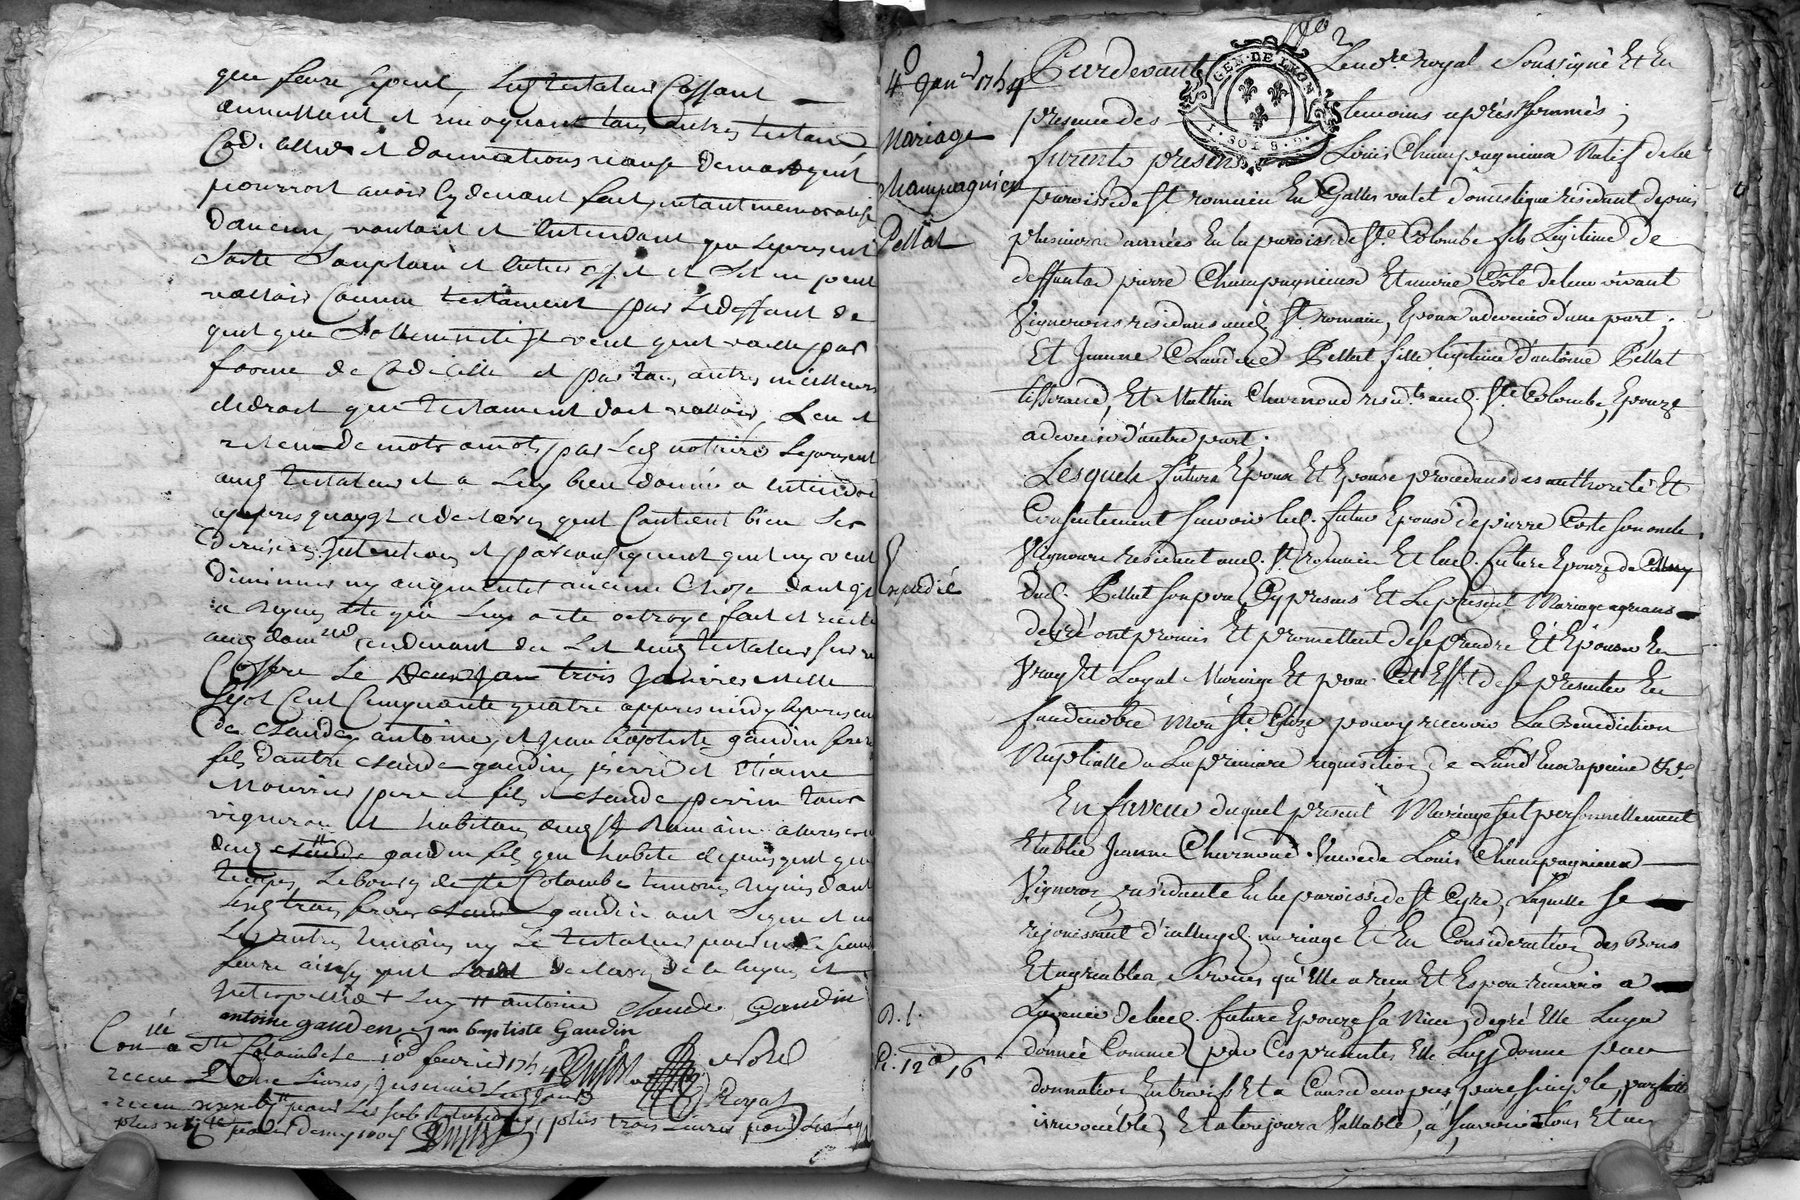 que faire ypeut, Led testateur Cassant
annullant et revoquant tous autres testam
Codicilles et donnations a cause de mort qu'il
pourroit avoir cydevant fait, n'etant memoratif
d'aucun, voulant et entendant que le present
sorte son plain et entier effet et s'il ne peut
valloir Comme testament par le deffaut de
quelque sollemnité il veut quil vaille par
forme de Codicille et par tous autres meilleurs
droit que testament doit valloir, Leu et
releu de mots a mots par led notaire le present
aud testateur et a luy bien donné a entendre
apres quoy il a declaré quil Contient bien ses
dernieres Intentions et par consequent quil ny veut
diminuer ny augmenter aucune Chose dont il
a requis acte que luy a ete octroyé fait et recité
aud dom^e au devant du lit dud testateur sur un
Coffre le trois Janvier mille
sept Cent Cinquante quatre appres midy en presence
de Claude, antoine, et Jean baptiste gaudin freres
fils d'autre claude gaudin, pierre et Etienne
Mourrier pere et fils et claude perrin tous
vignerons et habitans aud St Romain a la reserve
dud claude gaudin fils qui habite depuis quelque
temps Le bourg de Ste Colombe temoins requis dont
lesd trois freres gaudin ont signé et non
les autres temoins ny le testateur pour ne le scavoir
faire ainsy quil ont declaré de ce enquis et
Interpellé + Luy tt antoine Claude Gaudin
antoine gauden Jan baptiste Gaudin
Con^lé a Ste Colombe le 10 fevrier 1754
receu Douze Livres,
Royal
plus trois Livres pour
4^e Janv^r 1754
Mariage
Champagnieu
Pellat
Expedié
R. 1.
R. 12^d 16
GEN. DE LYON
1. SOL 8. D.
Pardevant Le no^re royal Soussigné Et En
presence des temoins apres nommés;
furent presens Louis Champagnieux Natif de la
paroisse de St romain En Galles valet domestique residant depuis
plusieurs années En la paroisse de Ste Colombe fils Legitime de
deffuntes pierre Champagnieux Et marie Coste de leur vivant
Vignerons residans aud. St romain, Epoux advenir d'une part;
Et Jeanne Claudine Pellat fille legitime d'antoine Pellat
tisserand, Et Mathia Charnoud resid^ts aud. Ste Colombe, Epouze
advenir d'autre part.
Lesquels futurs Epoux Et Epouse procedans des authorité Et
Consentement scavoir led. futur Epoux de pierre Coste son oncle
Vigneron residant aud. St romain Et lad. future Epouze de
dud. Pellat son pere Cy presens Et le present Mariage agreans
de gré ont promis Et promettent de se prendre Et Epouser En
Vray Et Loyal Mariage Et pour Cet Eff^t de se presenter En
face de nôtre Mere Ste Eglise pour y recevoir La Benediction
Nuptialle a La premiere requisition de L'un d'Eux a peine &c^a
En faveur duquel present Mariage s'est personnellement
Etablie Jeanne Charnoud Veuve de Louis Champagnieux
Vigneron, residante En la paroisse de St Cyre, Laquelle se
rejouissant d'icelluy mariage Et En Consideration des Bons
Et agreables services qu'Elle a receu Et Espere recevoir a
L'avenir de lad. future Epouze sa Niece, de gré Elle Luy a
donnée Comme par Ces presentes Elle Luy donne par
donnation Entrevifs Et a Cause de noces pure simple, parfaitte
irrevocable, Et a toujours Vallable, a scavoir tous Et un